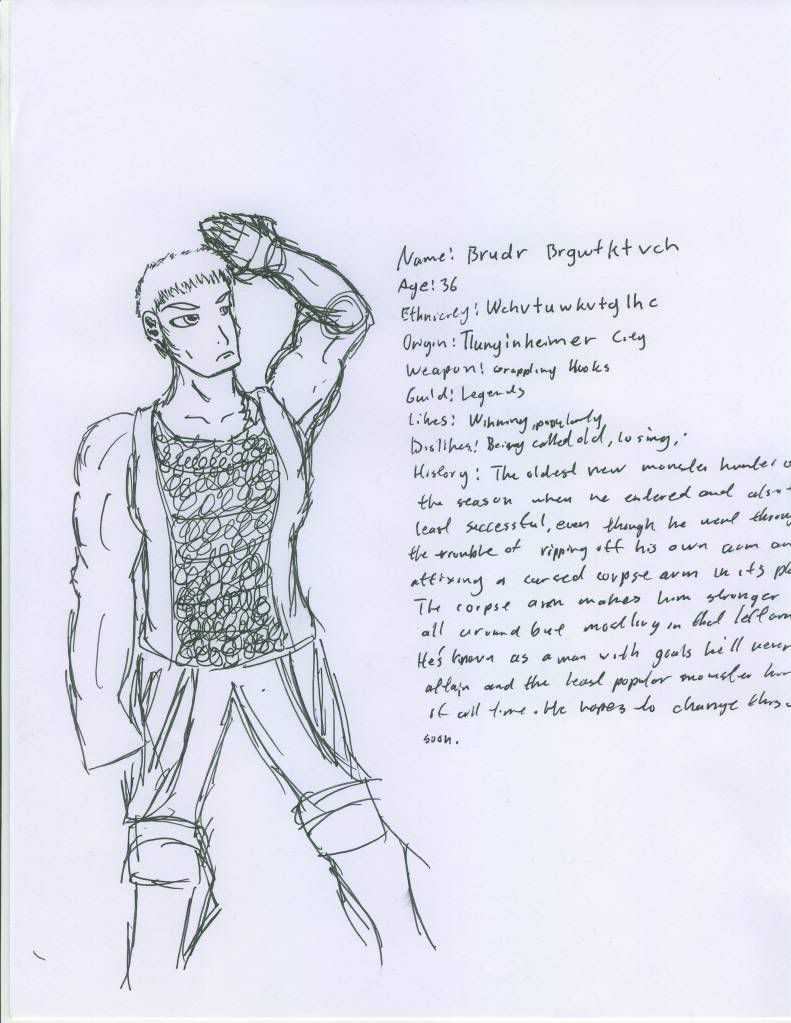 Name: Brudr Brgwtktvch
Age: 36
Ethnicity: Wchvtuwkvtglhc
Origin: Tlunginheimer City
Weapon: Grappling Hooks
Guild: Legends
Likes: Winning, popularity
Dislikes: Being called old, losing,.
History: The oldest new monster hunter
the season when he entered and also
least successful, even though he went throug
the trouble of ripping off his own arm an
affixing a cursed corpse arm in its pl
The corpse arm makes him stronger
all around but mostly in that left arm
He's known as a man with goals he'll never
attain and the least popular monster hun
of all time. He hopes to change this
soon.